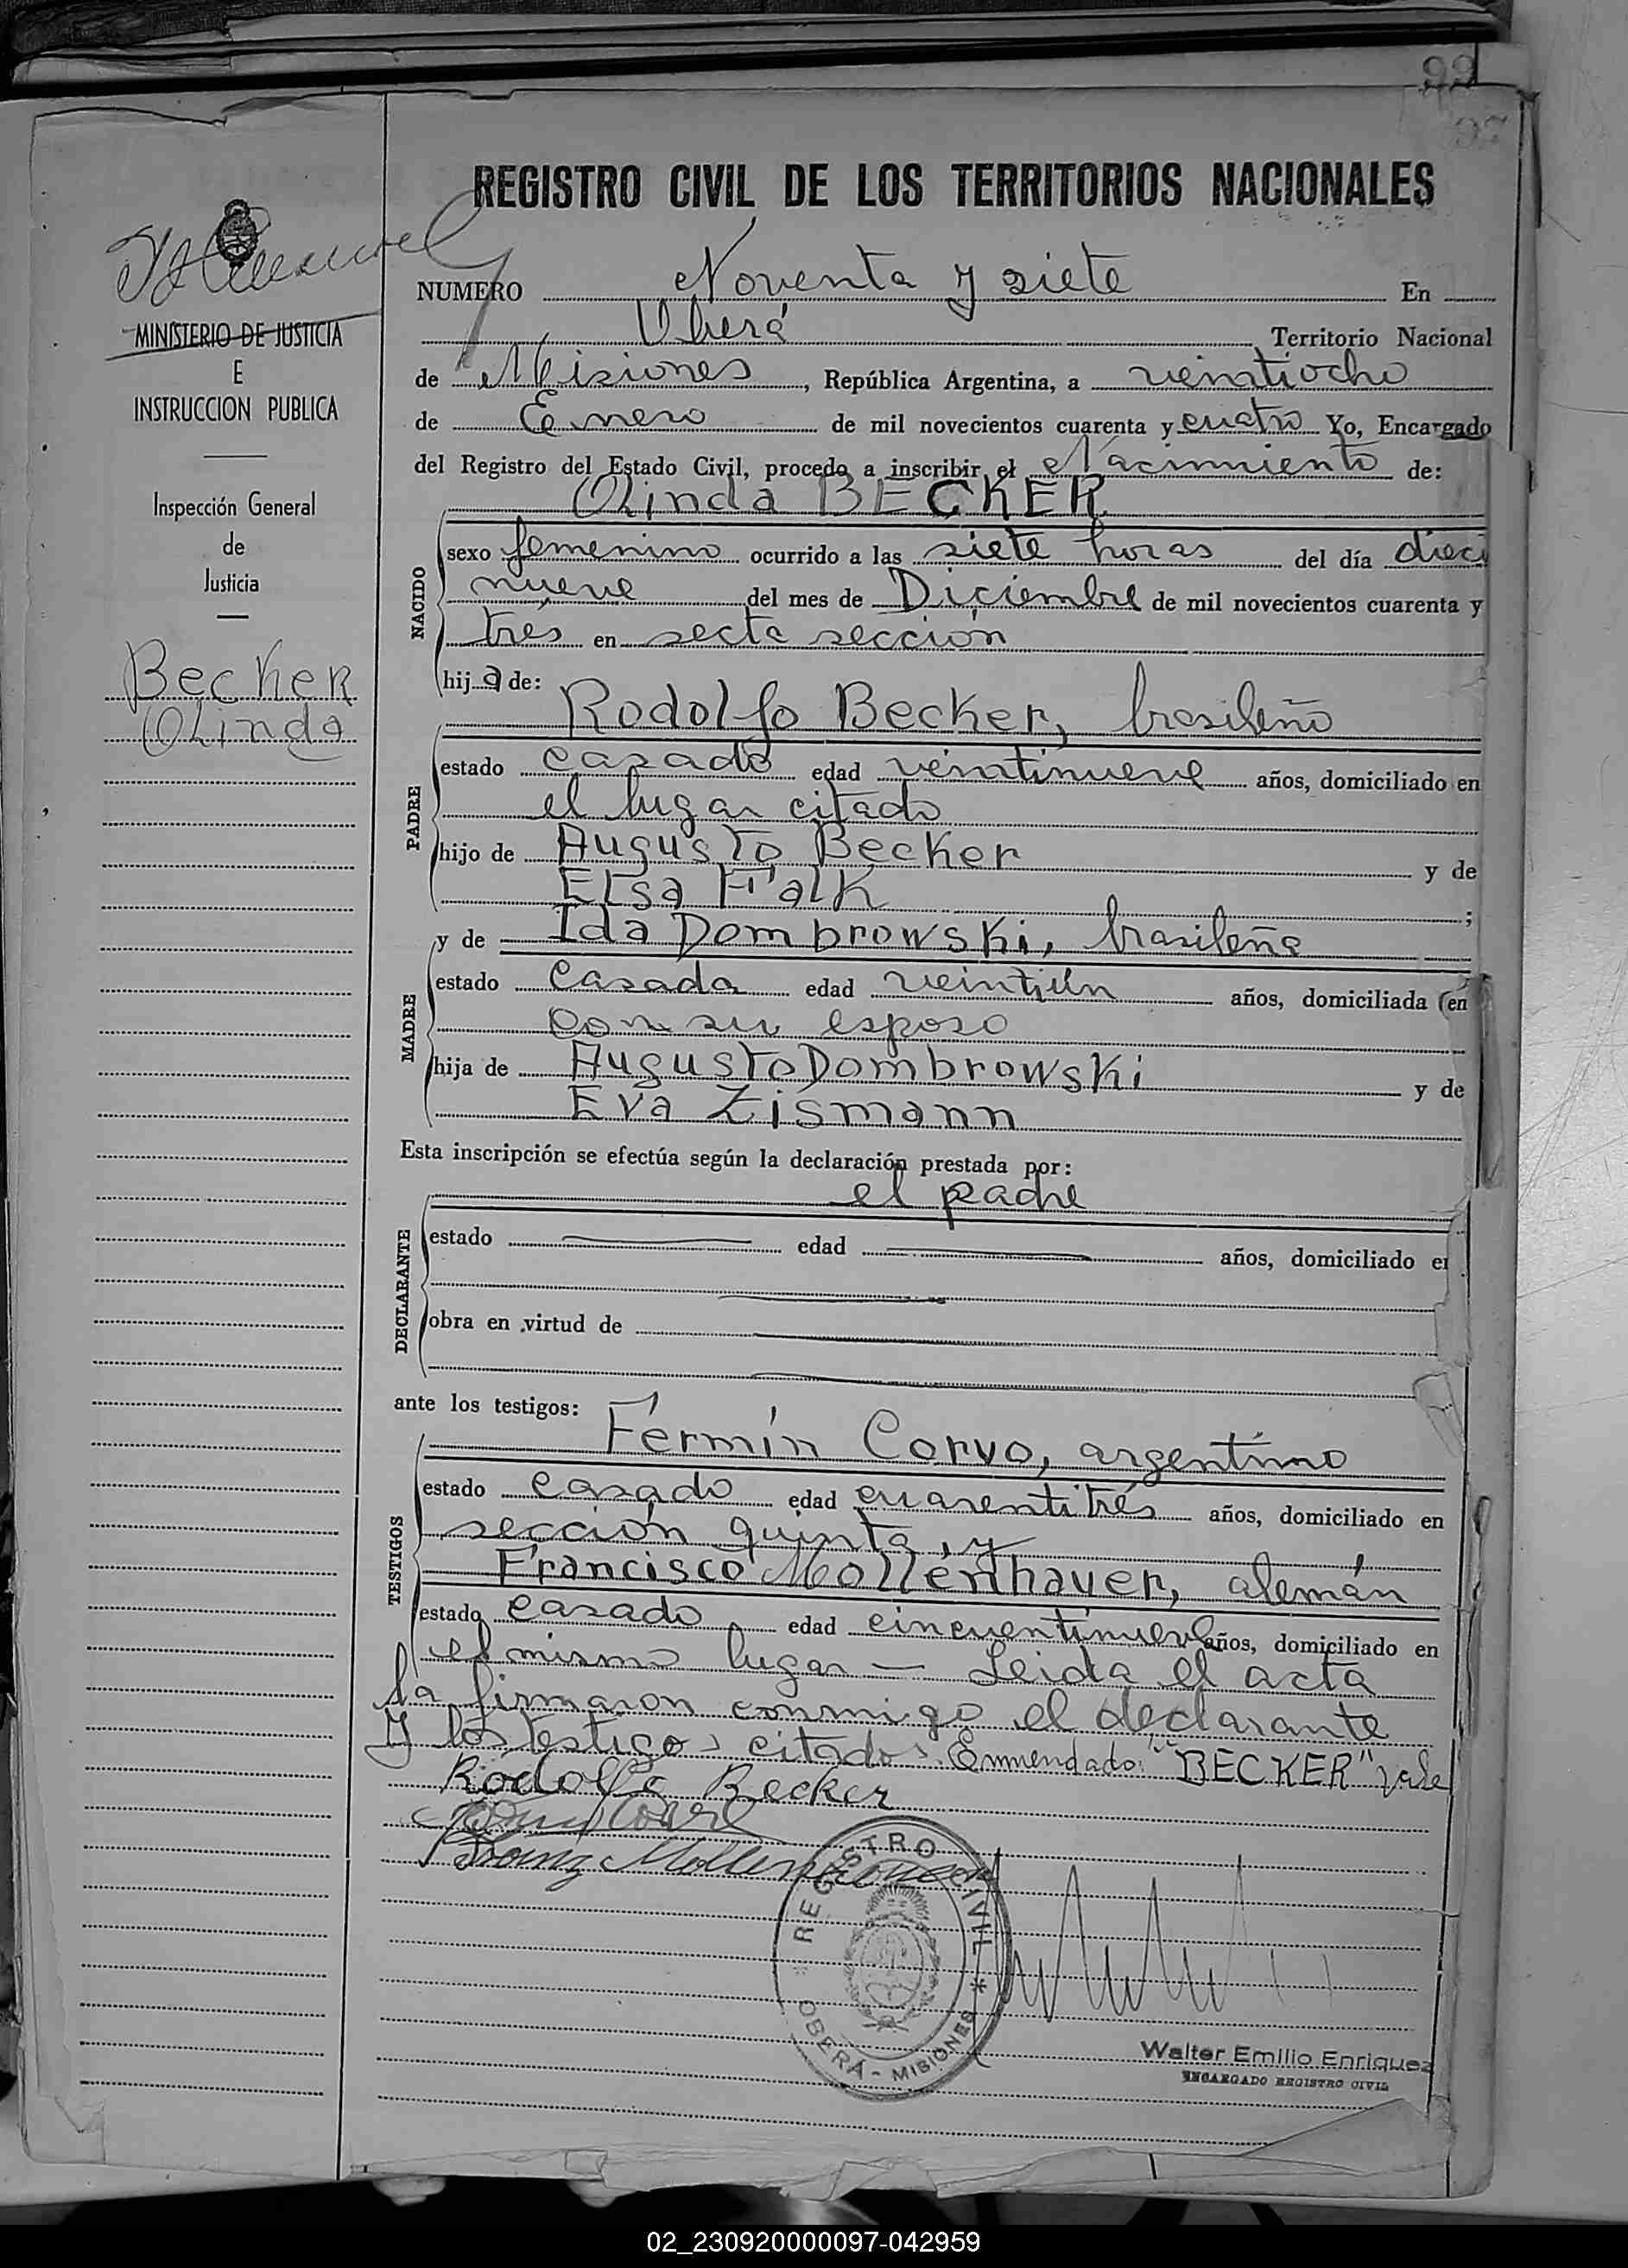 99
97
REGISTRO CIVIL DE LOS TERRITORIOS NACIONALES
MINISTERIO DE JUSTICIA
E
INSTRUCCION PUBLICA
Inspección General
de
Justicia
Becker
Olinda
NUMERO Noventa y siete En
Oberá Territorio Nacional
de Misiones, República Argentina, a veintiocho
de Enero de mil novecientos cuarenta y cuatro Yo, Encargado
del Registro del Estado Civil, procedo a inscribir el Nacimiento de:
Olinda BECKER
NACIDO
sexo femenino ocurrido a las siete horas del día dieci
nueve del mes de Diciembre de mil novecientos cuarenta y
tres en secta sección
hija de:
PADRE
Rodolfo Becker, brasileño
estado casado edad veintinueve años, domiciliado en
el lugar citado
hijo de Augusto Becker y de
Elsa Falk ;
MADRE
y de Ida Dombrowski, brasileña
estado casada edad veintiún años, domiciliada en
con su esposo
hija de Augusto Dombrowski y de
Eva Zismann
Esta inscripción se efectúa según la declaración prestada por:
el padre
DECLARANTE
estado edad años, domiciliado en
obra en virtud de
ante los testigos:
TESTIGOS
Fermín Corvo, argentino
estado casado edad cuarentitrés años, domiciliado en
sección quinta, y
Francisco Mollenhauer, alemán
estado casado edad cincuentinueve años, domiciliado en
el mismo lugar — Leida el acta
la firmaron conmigo el declarante
y los testigos citados. Enmendado: "BECKER" vale
Rodolfo Becker
Franz Mollenhauer
REGISTRO CIVIL * OBERÁ - MISIONES *
Walter Emilio Enriquez
ENCARGADO REGISTRO CIVIL
02_230920000097-042959